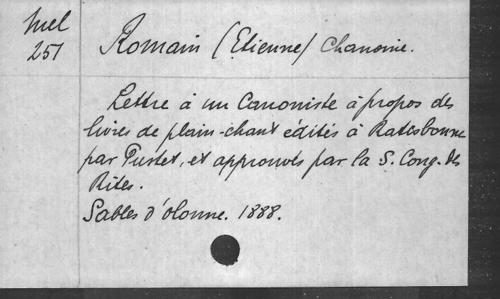 Mel
251
Romain (Etienne) Chanoine.
Lettre à un Canoniste à propos des
livres de plain-chant édités à Ratisbonne
par Pustet, et approuvés par la S. Cong. des
Rites.
Sables d'olonne. 1888.